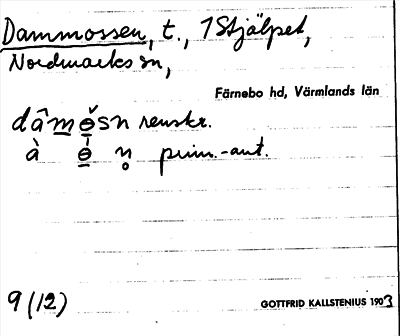 Dammossen, t., 1 Stjälpet,
Nordmarks sn,
Färnebo hd, Värmlands län
dâmɵ̌sn renskr.
à ɵ n̥ prim.-ant.
9 (12)
GOTTFRID KALLSTENIUS 1903